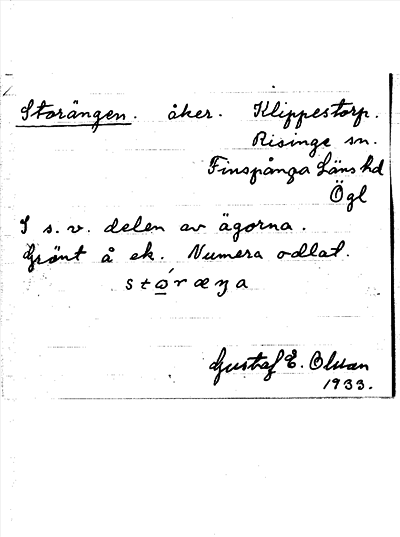 Storängen. åker. Klippestorp.
Risinge sn.
Finspånga Läns hd
Ögl
I s. v. delen av ägorna.
Gränt å ek. Numera odlat.
stǿræŋa
Gustaf E. Olsson
1933.